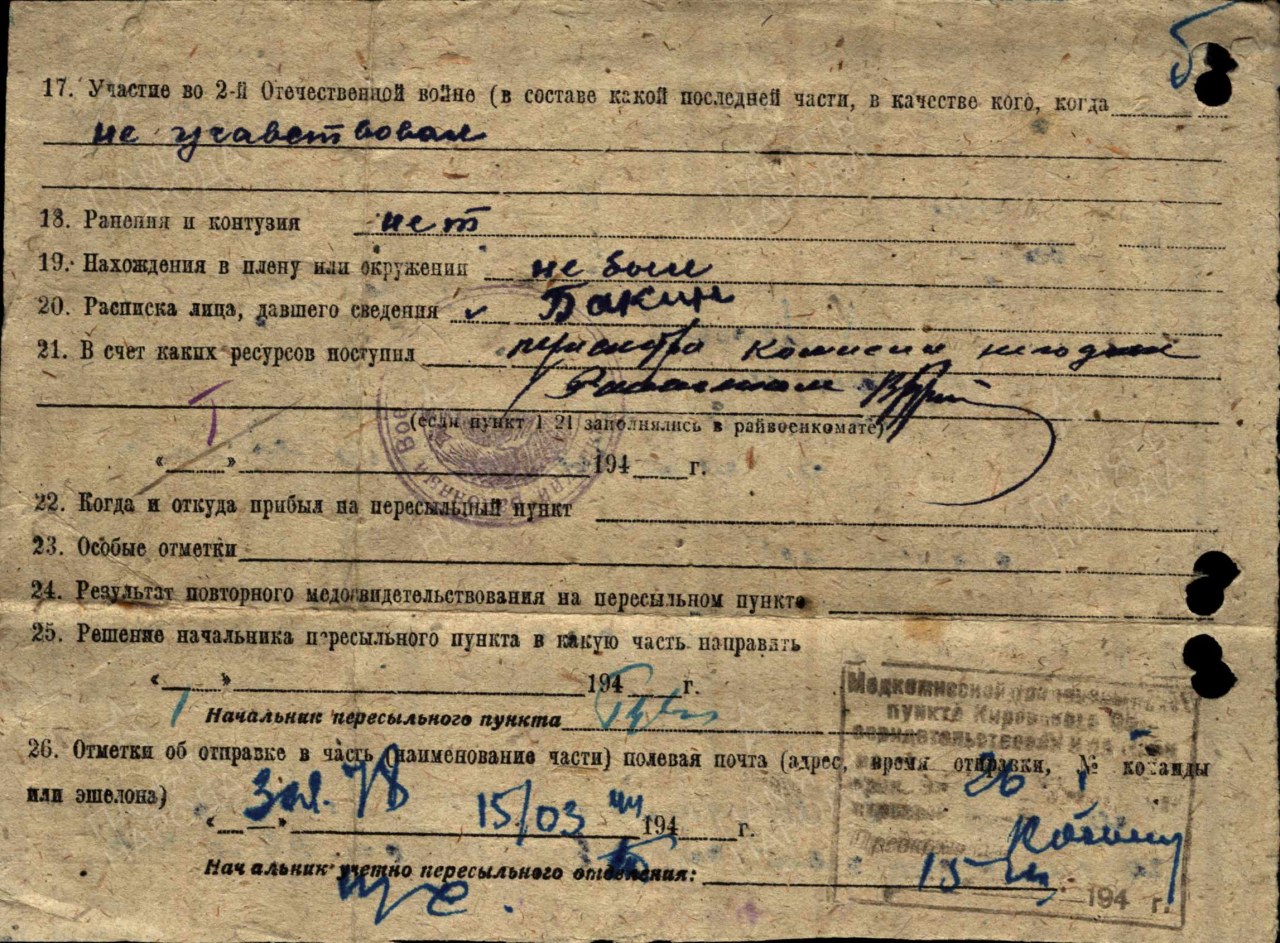 17. Участие во 2-й Отечественной войне (в составе какой последней части, в качестве кого, когда
не учавствовал
18. Ранения и контузия нет
19. Нахождения в плену или окружении не был
20. Расписка лица, давшего сведения Бакин
21. В счет каких ресурсов поступил комиссии
(если пункт 1 21 заполнялись в райвоенкомате)
« » 194 г.
22. Когда и откуда прибыл на пересыльный пункт
23. Особые отметки
24. Результат повторного медосвидетельствования на пересыльном пункте
25. Решение начальника пересыльного пункта в какую часть направить
« » 194 г.
Начальник пересыльного пункта
26. Отметки об отправке в часть (наименование части) полевая почта (адрес, время отправки, № команды
или эшелона) 78
« » 15/03 44 194 г.
Начальник учетно пересыльного отделения:
пункта Кировского
26
15
194 г.